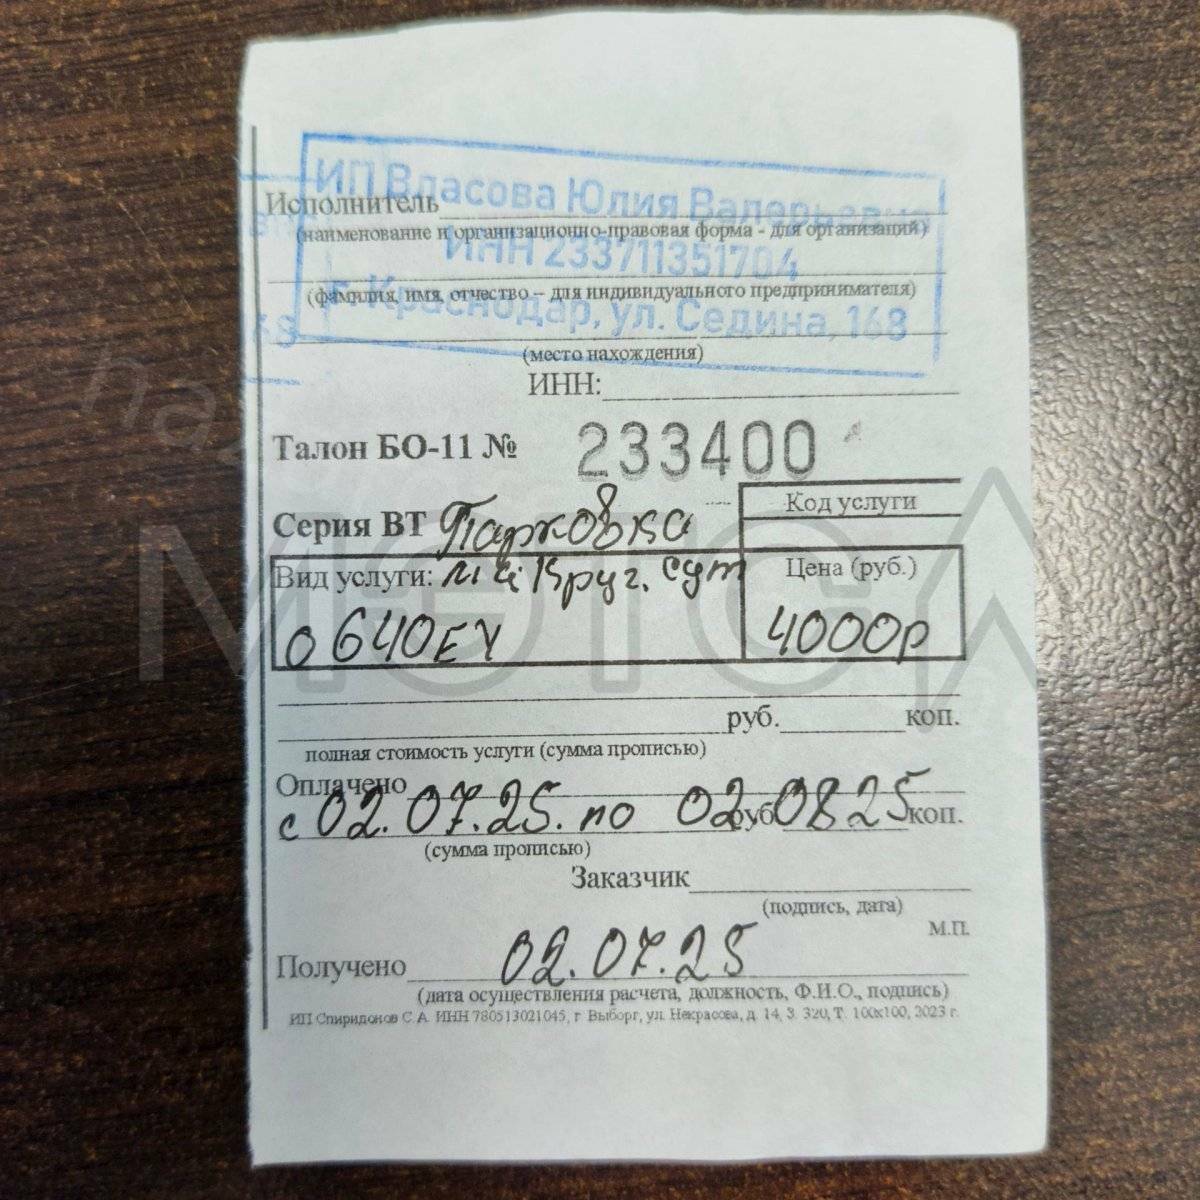 ИП Власова Юлия Валерьевна
Исполнитель
(наименование и организационно-правовая форма - для организаций)
ИНН 233711351704
(фамилия, имя, отчество – для индивидуального предпринимателя)
г. Краснодар, ул. Седина, 168
(место нахождения)
ИНН:
Талон БО-11 № 233400
Серия ВТ Парковка
Код услуги
Вид услуги: Круг. сут
Цена (руб.)
о 640ЕУ
4000р
руб. коп.
полная стоимость услуги (сумма прописью)
Оплачено
с 02.07.25. по 02 руб 08 25 коп.
(сумма прописью)
Заказчик
(подпись, дата)
М.П.
Получено 02.07.25
(дата осуществления расчета, должность, Ф.И.О., подпись)
ИП Спиридонов С.А. ИНН 780513021045, г. Выборг, ул. Некрасова, д. 14, З. 320, Т. 100х100, 2023 г.